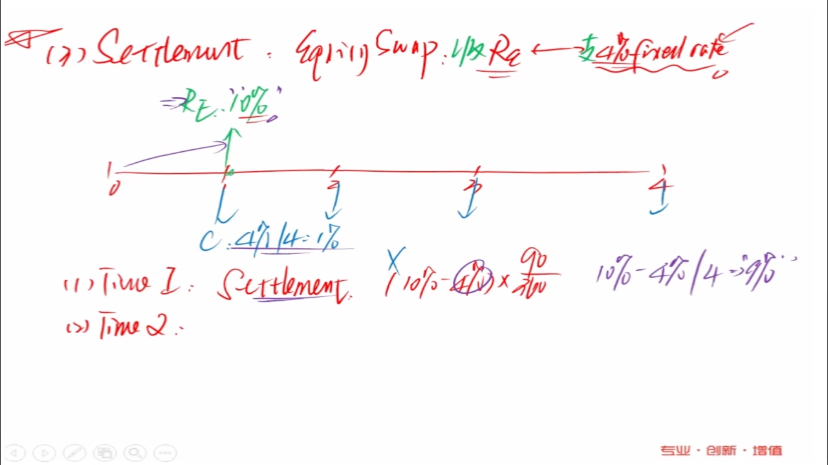 (3) Settlement: Equity Swap: 收 Re ← 支 4% fixed rate
⇒ RE: "10%"
0 1 2 3 4
C: 4%/4=1%
(1) Time 1: Settlement. X (10%-4%)×90/360 10%-4%/4⇒"9%"
(2) Time 2:
专业·创新·增值